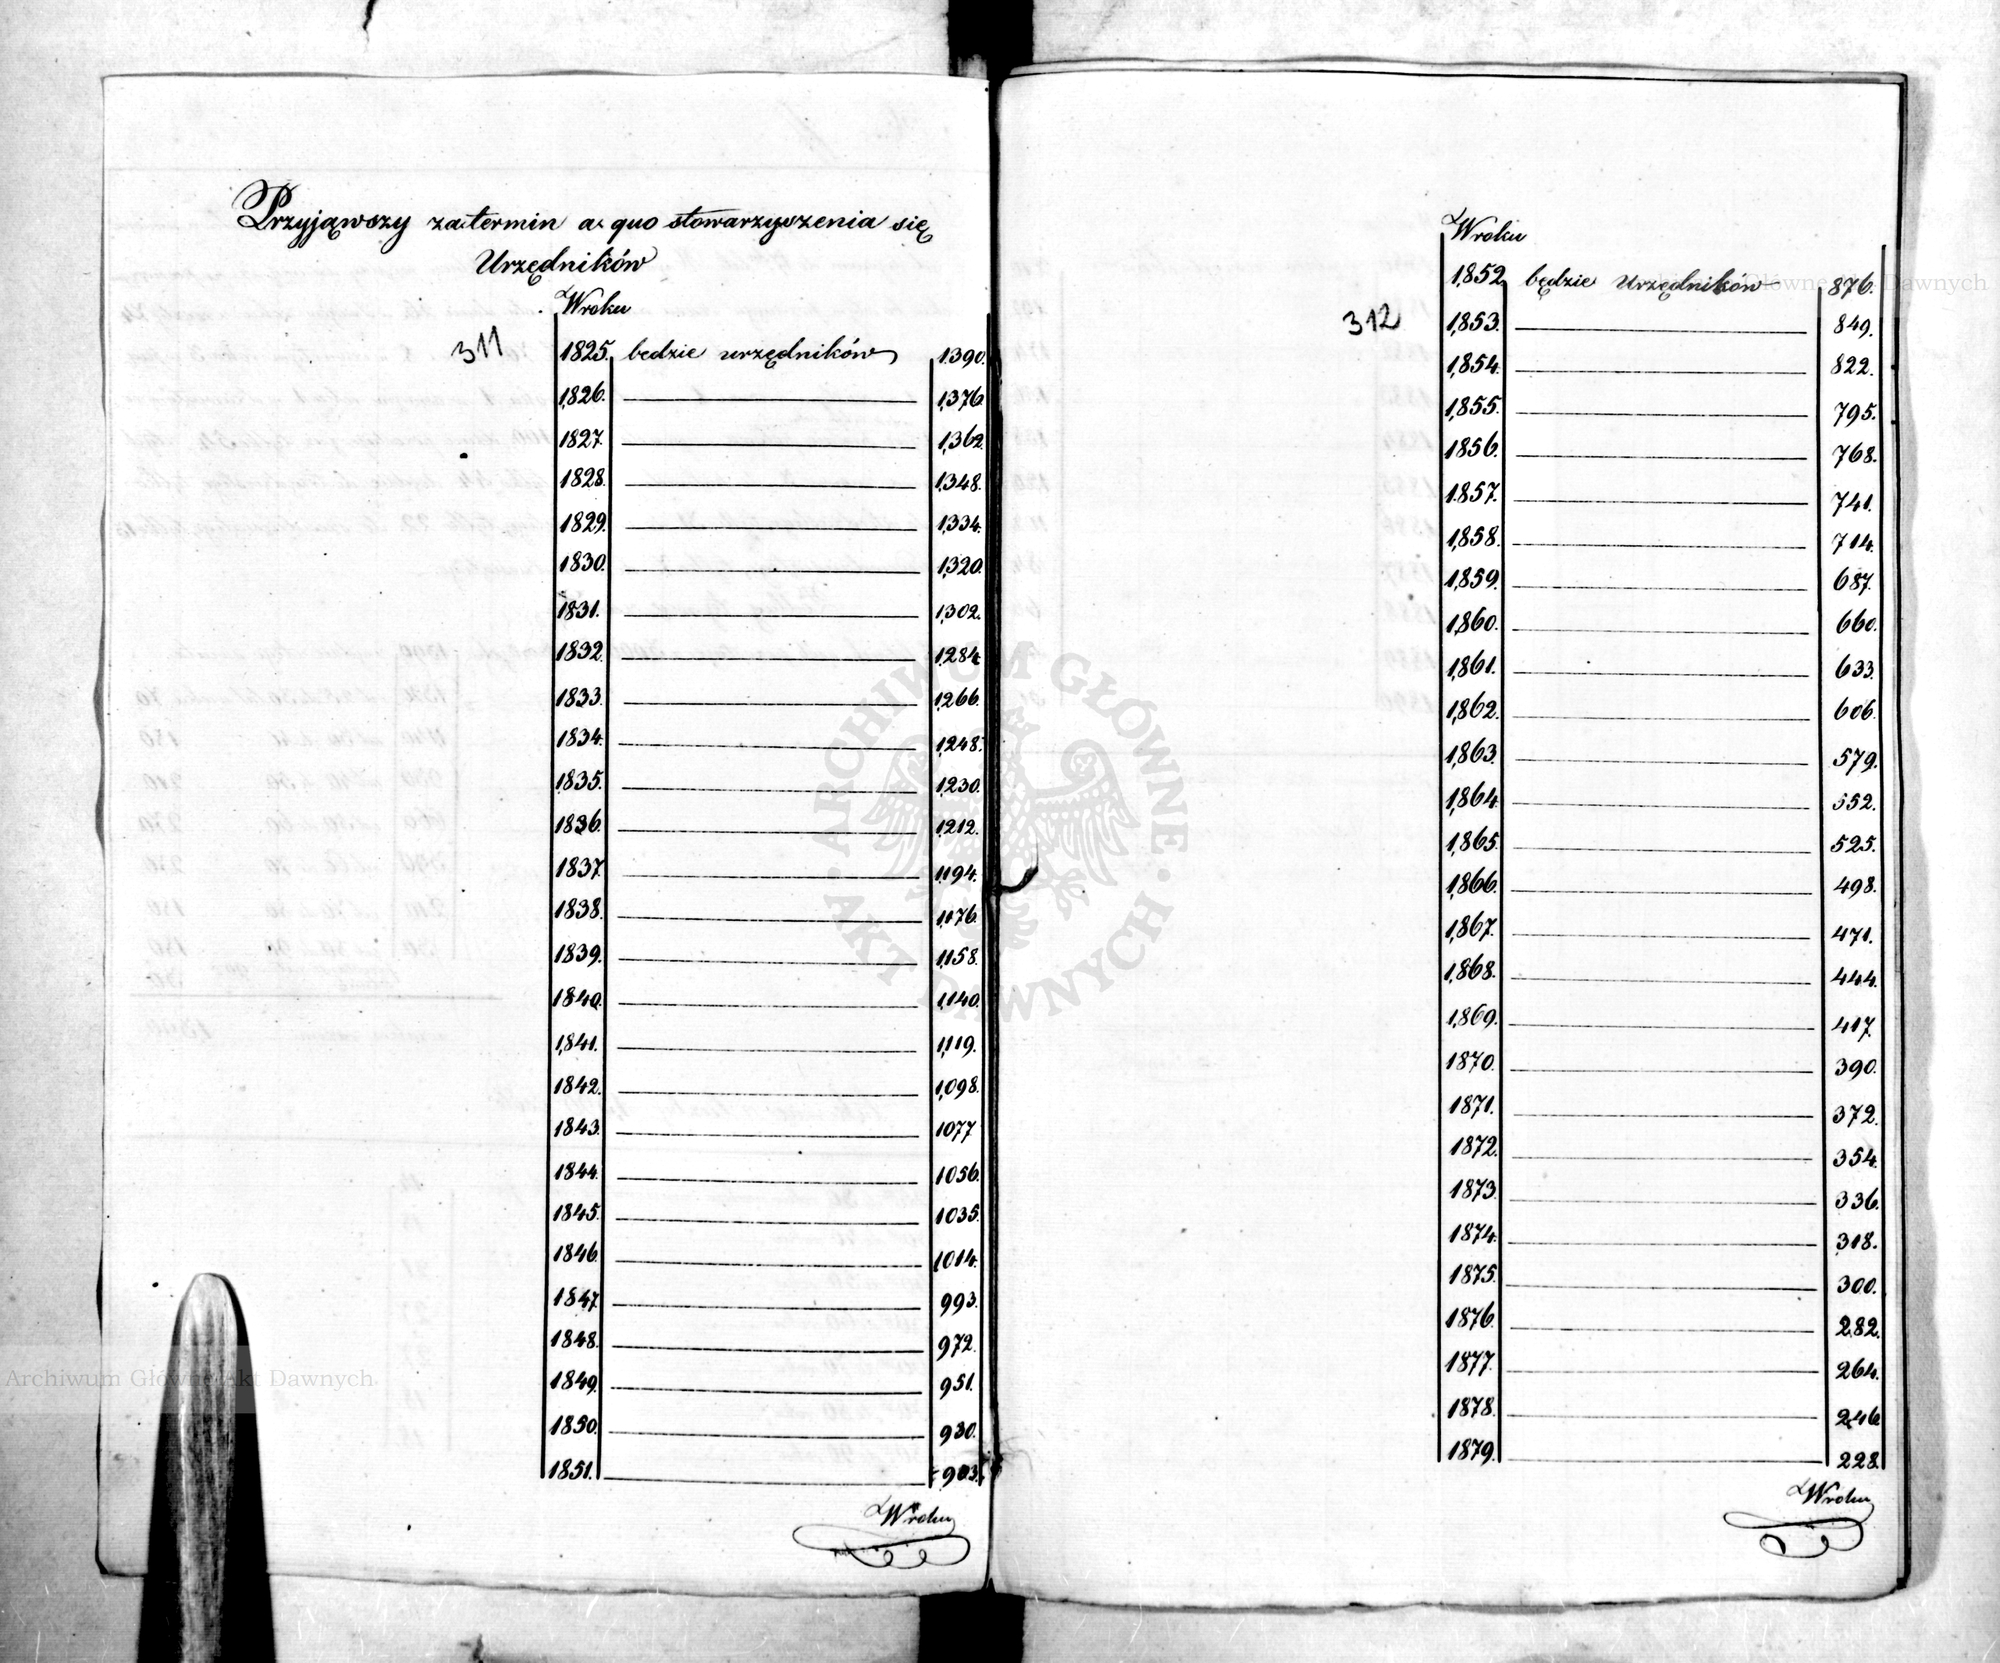 Przyjąwszy za termin a quo stowarzyszenia się
Urzędników
W roku
311
1825. będzie urzędników 1390.
1826. 1376
1827. 1362.
1828. 1348.
1829. 1334.
1830. 1320.
1831. 1302.
1832. 1284
1833. 1266.
1834. 1248.
1835. 1230.
1836. 1212.
1837. 1194.
1838. 1176.
1839. 1158.
1840. 1140.
1841. 1119.
1842. 1098.
1843. 1077
1844. 1056.
1845. 1035.
1846. 1014.
1847. 993.
1848. 972.
1849. 951.
1850. 930.
1851. 903.
W roku
W roku
1852 będzie Urzędników 876.
312
1853. 849.
1854. 822.
1855. 795.
1856. 768.
1857. 741.
1858. 714.
1859. 687.
1860. 660.
1861. 633.
1862. 606.
1863. 579.
1864. 552.
1865. 525.
1866. 498.
1867. 471.
1868. 444.
1869. 417.
1870. 390.
1871. 372.
1872. 354.
1873. 336.
1874. 318.
1875. 300.
1876. 282.
1877. 264.
1878. 246
1879. 228.
W roku
ARCHIWUM GŁÓWNE · AKT DAWNYCH ·
Archiwum Główne Akt Dawnych
Archiwum Główne Akt Dawnych